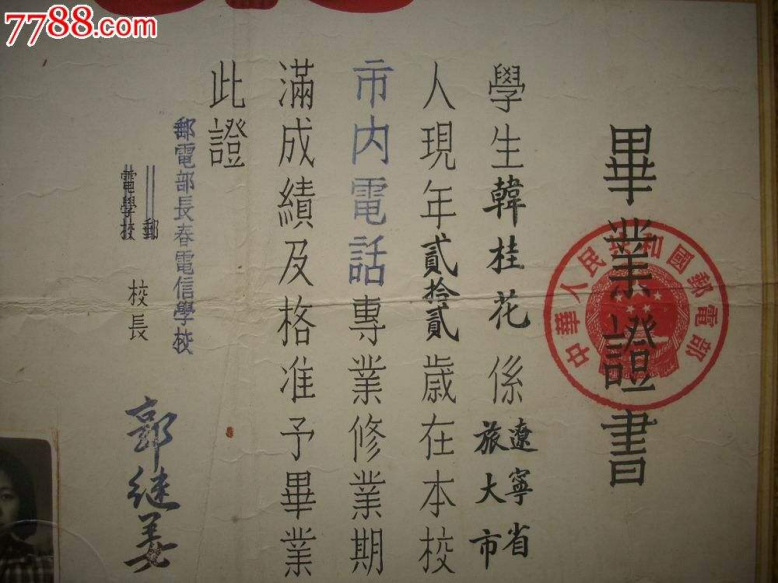 7788.com
畢業證書
中華人民共和國郵電部
學生韓桂花係遼寧省
旅大市
人現年貳拾貳歲在本校
市内電話專業修業期
滿成績及格准予畢業
此證
郵電部長春電信學校
郵
電學校
校長
郭继姜